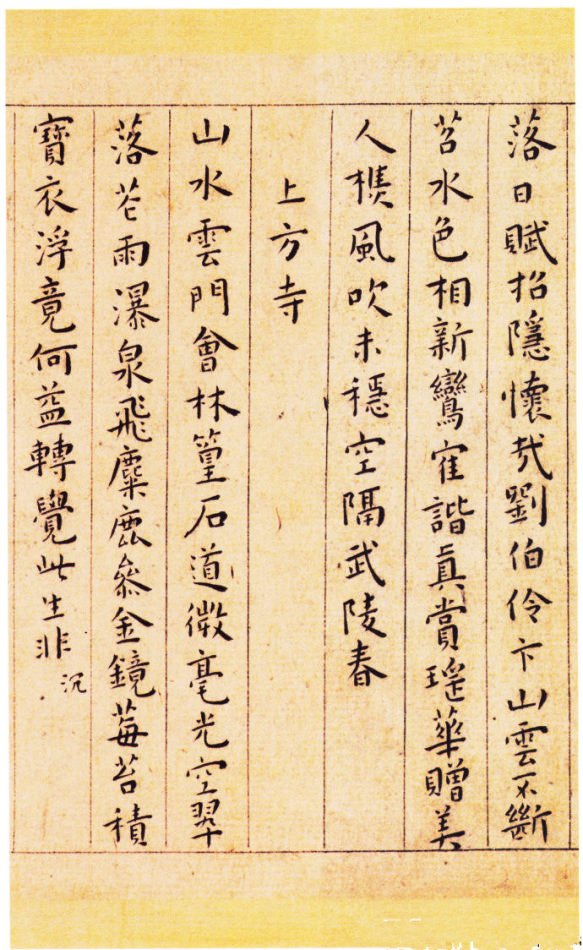 落日賦招隱懷哉劉伯伶卞山雲不斷
苕水色相新鸞寉諧真賞瑤華贈美
人樵風吹未穩空隔武陵春
上方寺
山水雲門會林篁石道微毫光空翠
落芲雨瀑泉飛麋鹿叅金鏡莓苔積
寶衣浮竟何益轉覺此生非 沉